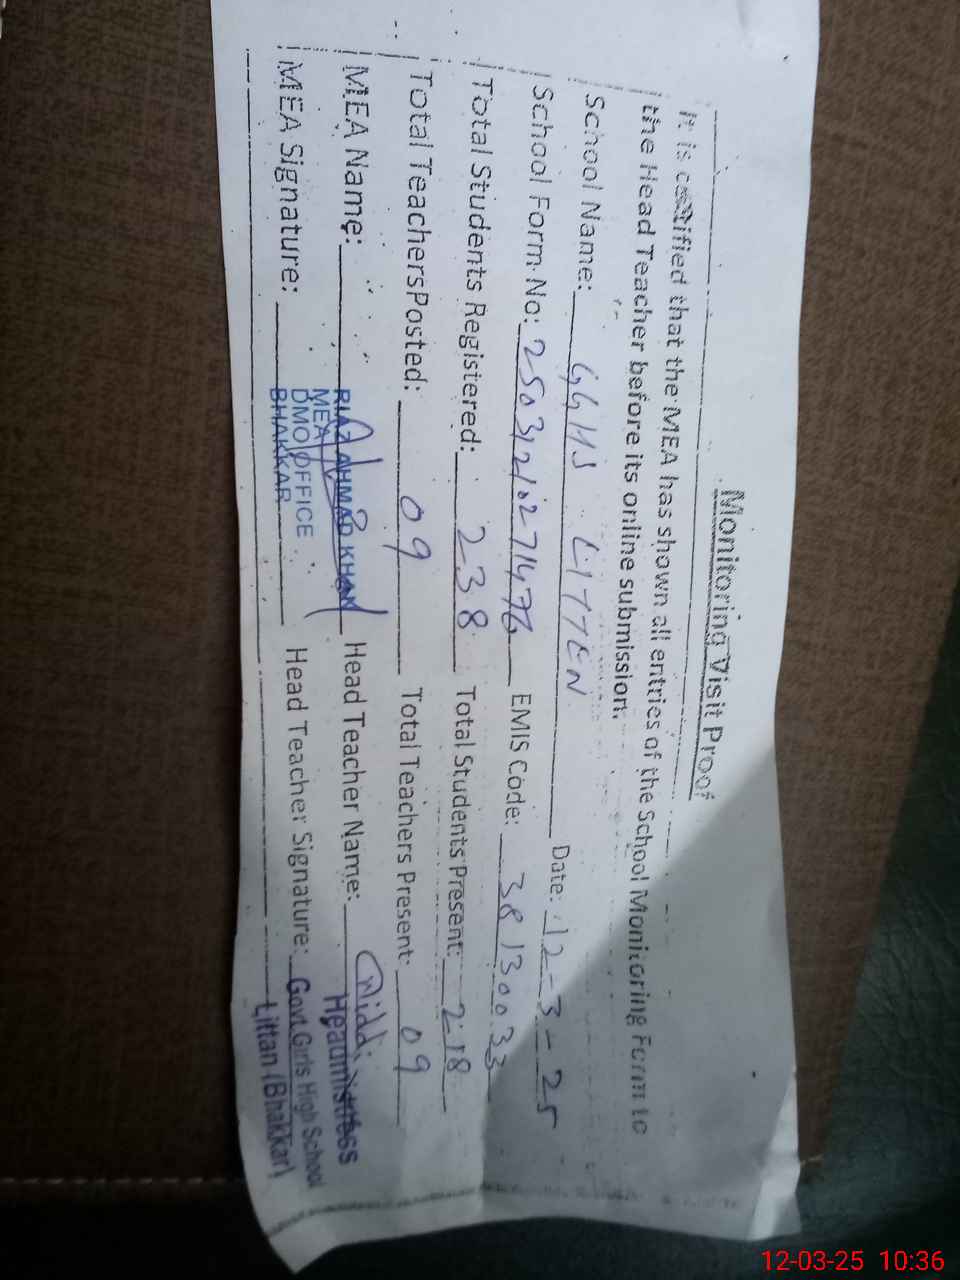 Monitoring Visit Proof
It is certified that the MEA has shown all entries of the School Monitoring Form to
the Head Teacher before its online submission.
School Name: GGHS LITTEN Date: 12-3-25
School Form No: EMIS Code: 38130033
Total Students Registered: 238 Total Students Present: 218
Total Teachers Posted: 09 Total Teachers Present: 09
MEA Name: RIAZ AHMAD KHAN Head Teacher Name: Headmistress
MEA
MEA Signature: DMO OFFICE Head Teacher Signature: Govt. Girls High School
BHAKKAR Littan (Bhakkar)
12-03-25 10:36